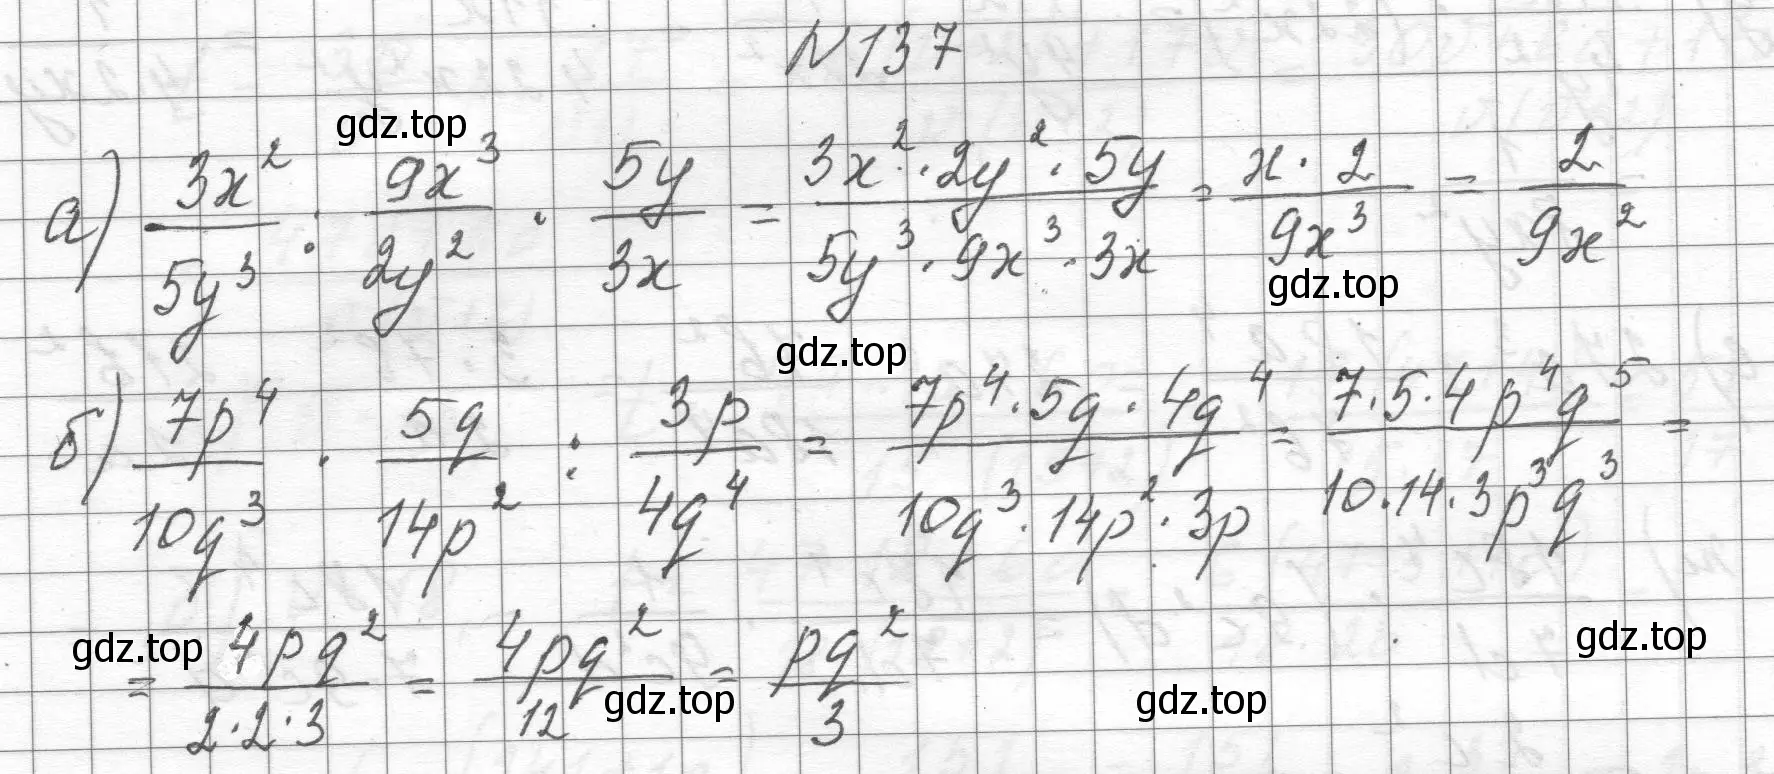 №137
gdz.top
а) 3x²/5y³ : 9x³/2y² · 5y/3x = 3x²·2y²·5y/5y³·9x³·3x = x·2/9x³ = 2/9x²
gdz.top
gdz.top
б) 7p⁴/10q³ · 5q/14p² : 3p/4q⁴ = 7p⁴·5q·4q⁴/10q³·14p²·3p = 7·5·4p⁴q⁵/10·14·3p³q³ =
gdz.top
= 4pq²/2·2·3 = 4pq²/12 = pq²/3
gdz.top
gdz.top
gdz.top